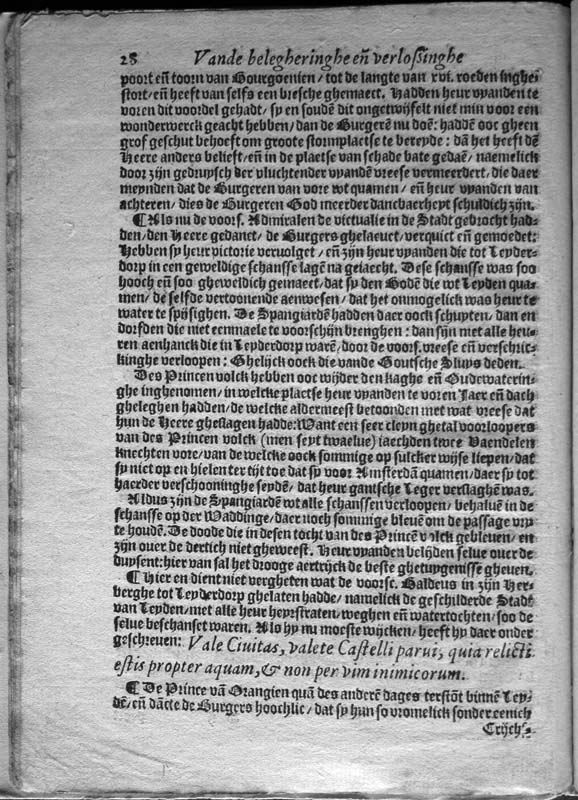 28 Vande belegheringhe eñ verlossinghe
poort eñ toorn van Bourgoenien/ tot de langte van xvi. roeden inghe-
stort/ eñ heeft van selfs een bresche ghemaect. Hadden heur vyanden te
voren dit voordel gehadt/ sy en soudē dit ongetwijfelt niet min voor een
wonderwerck geacht hebben/ dan de Burgerē nu doē: haddē ooc gheen
grof geschut behoeft om groote stormplaetse te bereydē: dā het heeft dē
Heere anders belieft/ eñ in de plaetse van schade bate gedaē/ naemelick
door zijn gedruysch der vluchtender vyandē vreese vermeerdert/ die daer
meynden dat de Burgeren van vore wt quamen/ eñ heur vyanden van
achteren/ dies de Burgeren God meerder danckbaerheyt schuldich zijn.
¶ Als nu de voors. Admiralen de victualie in de Stadt gebrocht had-
den/ den Heere gedanct/ de Burgers ghelaeuct/ verquict eñ gemoedet:
Hebben sy heur victorie vervolget/ eñ zijn heur vyanden die tot Leyder-
dorp in een geweldige schansse lagē na geiaecht. Dese schansse was soo
hooch eñ soo gheweldich gemaect/ dat sy den Godē die wt Leyden qua-
men/ de selfde vertoonende aenwesen/ dat het onmogelick was heur te
water te spijsighen. De Spangiardē hadden daer oock schuyten/ dan en
dorsden die niet eenmaele te voorschijn brenghen: dan sijn met alle heu-
ren aenhanck die in Leyderdorp warē/ door de voors. vreese eñ verschric-
kinghe verloopen: Ghelijck oock die vande Goutsche Sluys deden.
Des Princen volck hebben ooc wijder den kaghe eñ Oudewaterin-
ghe inghenomen/ in welcke plaetse heur vyanden te voren Iaer eñ dach
gheleghen hadden/ de welcke aldermeest betoonden met wat vreese dat
hun de Heere gheslagen hadde: Want een seer cleyn ghetal voorloopers
van des Princen volck (men seyt twaelve) iaechden twee Vaendelen
knechten vore/ van de welcke oock sommige op sulcker wijse liepen/ dat
sy niet op en hielen ter tijt toe dat sy voor Amsterdā quamen/ daer sy tot
haerder verschooninghe seydē/ dat heur gantsche Leger verslaghē was.
Aldus zijn de Spangiardē wt alle schanssen verloopen/ behalvē in de
schansse op der Waddinge/ daer noch sommige blevē om de passage vry
te houdē. De doode die in desen tocht van des Princē volck gebleven/ en
zijn over de dertich niet gheweest. Heur vyanden belijden selve over de
duysent: hier van sal het drooge aertrijck de beste ghetuygenisse gheven.
¶ Hier en dient niet vergheten wat de voorst. Baldeus in zijn Her-
berghe tot Leyderdorp ghelaten hadde/ namelick de geschilderde Stadt
van Leyden/ met alle heur heyrstraten/ weghen eñ watertochten/ soo de
selve beschanset waren. Als hy nu moeste wijcken/ heeft hy daer onder
geschreven: Vale Ciuitas, valete Castelli parui, quia relicti
estis propter aquam, & non per vim inimicorum.
¶ De Prince vā Orangien quā des anderē dages terstōt binnē Ley-
dē/ eñ dācte de Burgers hoochlic/ dat sy hun so vromelick sonder eenich
Crijchs-